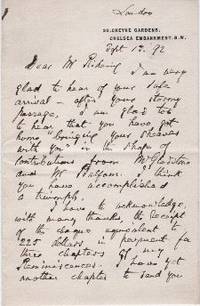 London
30, CHEYNE GARDENS,
CHELSEA EMBANKMENT. S.W.
Sept 12. 92
Dear Mr
I am very
glad to hear of your safe
arrival – after your stormy
passage. I am glad too
to hear that you have got
home "bringing your sheaves
with you" in the shape of
contributions from Mr Gladstone
and Mr Balfour. I think
you have accomplished
a triumph.
I have to acknowledge,
with many thanks, the receipt
of the cheque equivalent to
225 dollars in payment for
three chapters of my
Reminiscences. I have yet
another chapter to send you